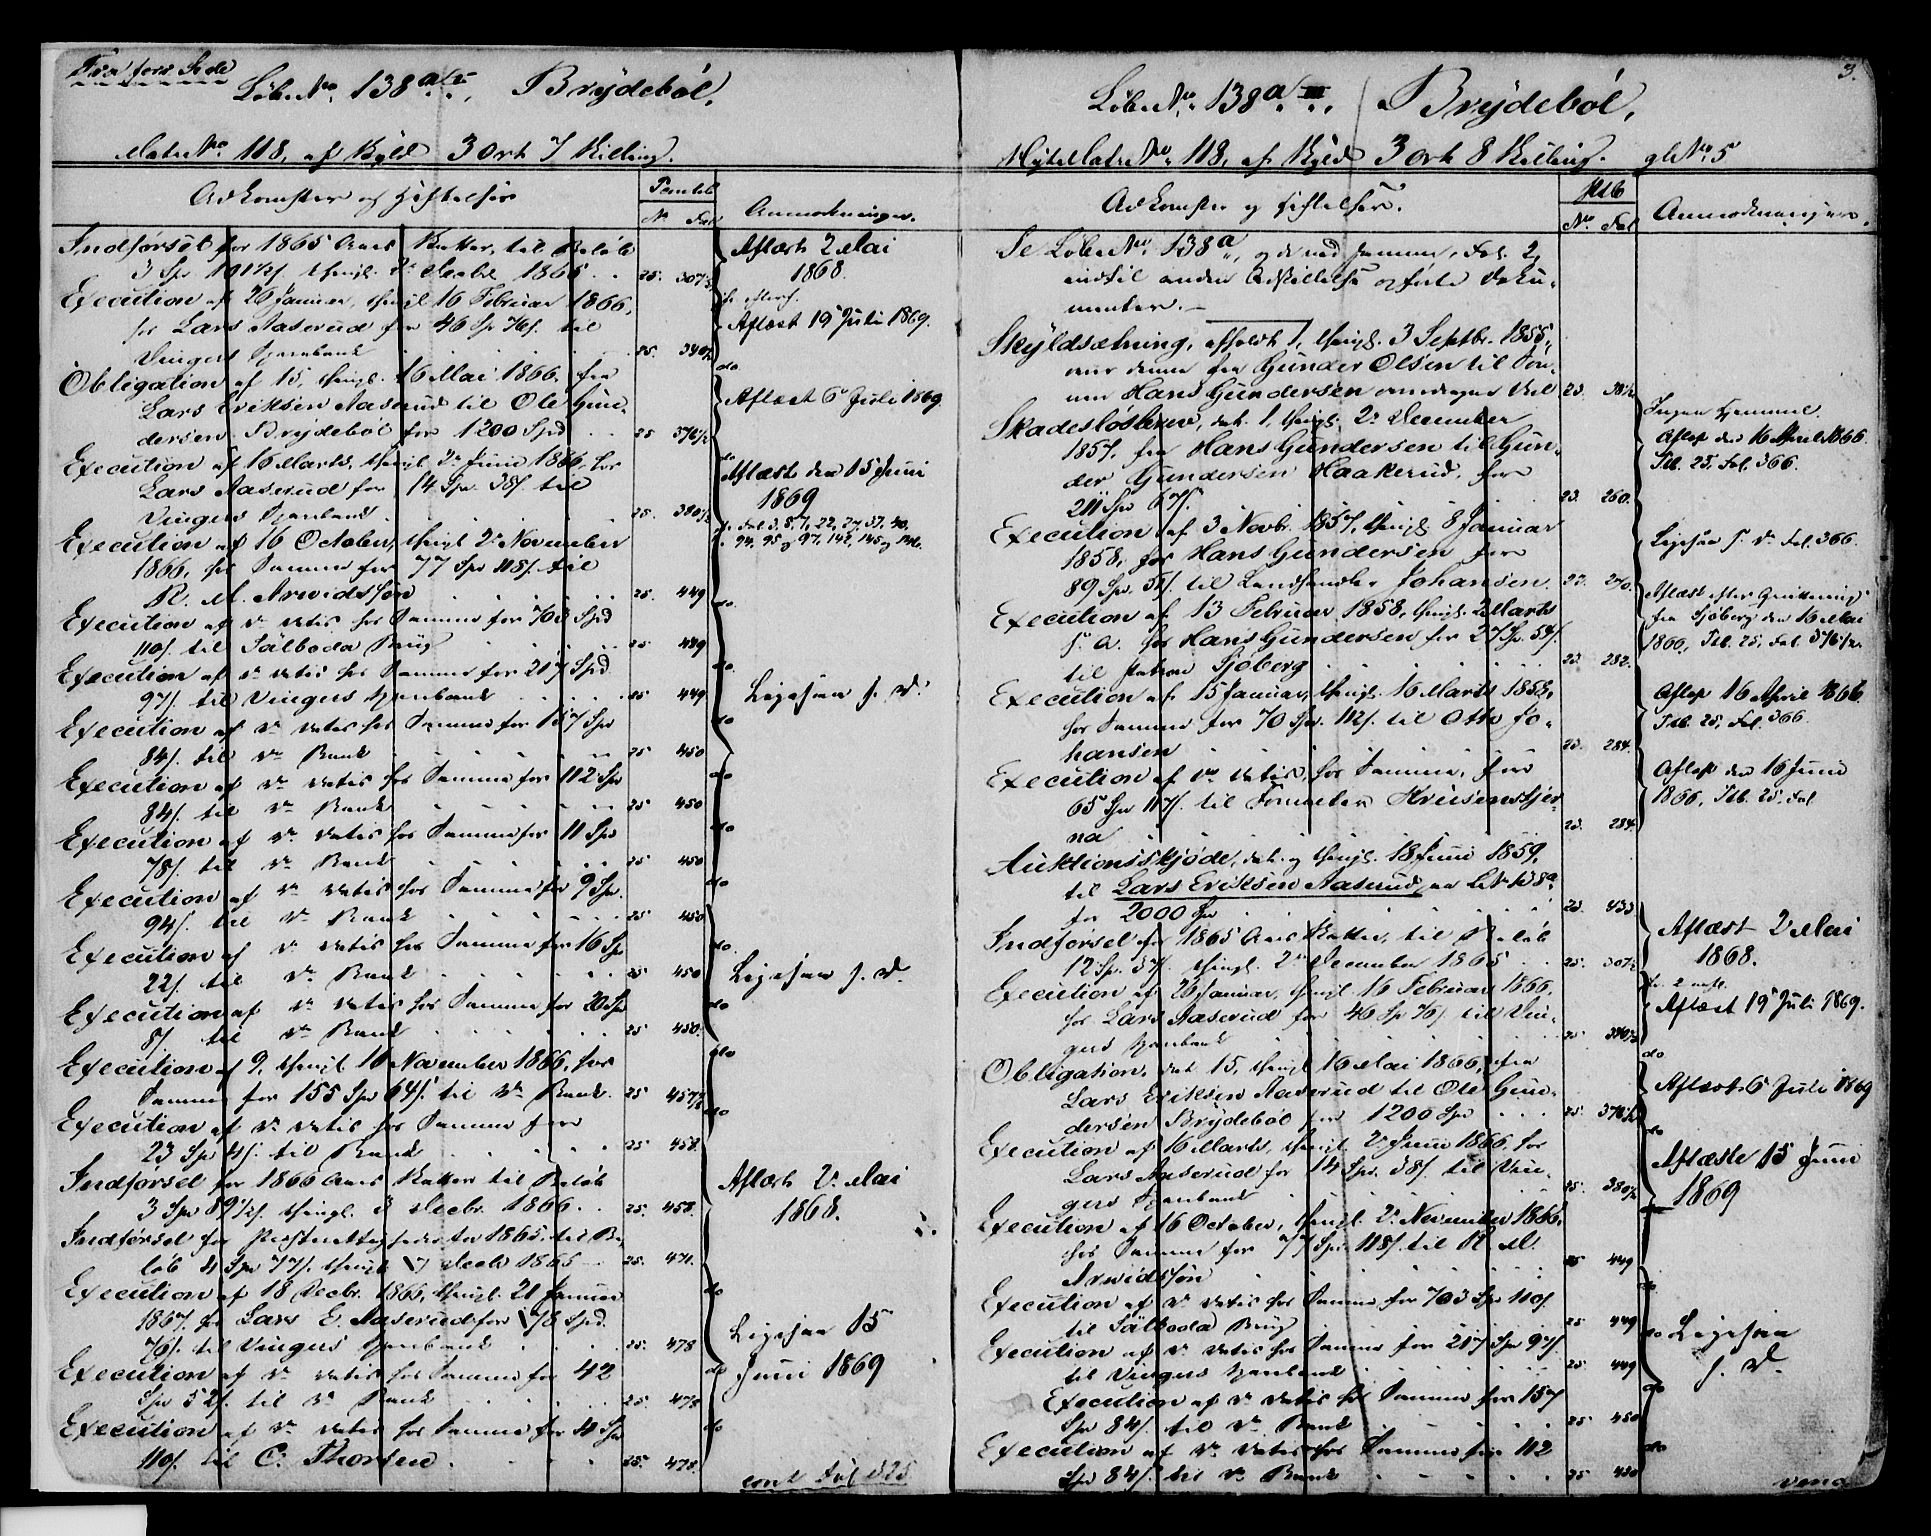 Fra forr. Side
Løbe No 138 a, Brydebøl.
Matr No 118, af Skyld 3 Ort 7 Skilling.
Adkomster og Heftelser
Panteb
No Fol
Anmærkninger.
Indførsel for 1865 Aars Skatter, til Beløb
3 Spd 101½ s. thingl. 2 Decbr 1865 25. 307½
Aflæst 2 Mai
1868.
Execution af 26 Januar, thingl 16 Februar 1866,
hos Lars Aaserud for 46 Spd 76 s. til
Vingers Sparebank 25. 340½
Aflæst 19 Juli 1869.
Obligation af 15, thingl. 16 Mai 1866. fra
Lars Eriksen Aaserud til Ole Gun-
dersen Brydebøl for 1200 Spd 25 376½
do
Aflæst 6 Juli 1869.
Execution af 16 Marts, thingl 2 Juni 1866, hos
Lars Aaserud for 14 Spd 38 s. til
Vingers Sparebank 25. 380½
do
Aflæst den 15 Juni
1869
Fol 3. 5. 7, 22, 27, 37, 40,
94, 95 og 97. 142, 145 og 146.
Execution af 16 October, thingl 2 November
1866, hos Samme for 77 Spd 118 s. til
R. M. Arvidssøn 25. 449
do.
Execution af d. Datis hos Samme for 703 Spd
110 s. til Sälboda Brug 25 449
do.
Execution af d. Datis hos Samme for 217 Spd
97 s. til Vingers Sparebank 25 449
Ligesaa s. D.
do
Execution af d. Datis hos Samme for 157 Spd
84 s. til d. Bank 25 450
do
Execution af d. Datis hos Samme for 112 Spd
84 s. til d. Bank 25 450
do
Execution af d. Datis hos Samme for 11 Spd
78 s. til d. Bank 25 450
do
Execution af d. Datis hos Samme for 9 Spd.
94 s. til d. Bank 25 450
do
Execution af d. Datis hos Samme for 16 Spd
22 s. til d. Bank 25 450
Ligesaa s. D.
do
Execution af d. Datis hos Samme for 20 Spd
8 s. til d. Bank 25 450.
do
Execution af 9, thingl 16 November 1866, hos
Samme for 155 Spd 64 s. til d. Bank. 25 457½
do
Execution af d. Datis hos Samme for
23 Spd 4 s. til Bank 25 458.
Indførsel for 1866 Aars Skatter til Beløb
3 Spd 89½ s. thingl. 3 Decbr. 1866. 25. 458.
Aflæst 2 Mai
1868.
Indførsel for Præsterettigheder for 1865, til Be
løb 4 Spd 77 s. thingl 17 Decbr 1866 25. 471.
Execution af 18 Decbr. 1866, thingl. 21 Januar
1867, hos Lars E. Aaserud for 178 Spd.
76 s. til Vingers Sparebank 25. 478
do
Ligesaa 15
Juni 1869
Execution af d. Datis hos Samme for 42
Spd 52 s. til d. Bank 25. 478
do
Execution af d. Datis hos Samme for 4 Spd
110 s. til C. Thorsen 25. 478.
do
cont Fol 525
3.
Løbe No 138 a III, Brydebøl,
Nyt Matr No 118, af Skyld 3 Ort 8 Skilling. gl No 5
Adkomster og Heftelser.
Ptb
No Fol
Anmærkninger.
Se Løbe No 138 a, og de ved samme, Fol. 2,
indtil anden Adskillelse opførte Doku-
menter.
Skyldsætning, afholdt 1, thingl. 3 Septbr. 1855,
over denne fra Gunder Olsen til Søn-
nen Hans Gundersen overdragne Deel 23. 38½
Ingen Hjemmel.
Skadesløsbrev, dat. 1, thingl. 2 December
1857, fra Hans Gundersen til Gun-
der Gundersen Haakerud, for
211 Spd 67 s. 23. 260.
Aflæst den 16 April 1866
Ptb. 25, Fol. 366.
Execution af 3 Novbr. 1857, thingl. 8 Januar
1858, hos Hans Gundersen for
89 Spd 51 s. til Landhandler Johansen. 23. 270.
Ligesaa s. D. Fol. 366.
Execution af 13 Februar 1858, thingl. 2 Marts
s. A. hos Hans Gundersen for 27 Spd 54 s.
til Patron Sjöberg 23. 282.
Aflæst efter Qvittering
fra Sjöberg den 16 Mai
1866, Ptb. 25, Fol. 376½.
Execution af 15 Januar, thingl. 16 Marts 1858,
hos Samme for 70 Spd. 112 s. til Otto Jo-
hansen 23. 284.
Aflæst 16 April 1866
Ptb. 25, Fol. 366.
Execution af d. Datis, hos Samme, for
65 Spd 117 s. til Forvalter Hreisenstjer-
na 23. 284.
Aflæst den 16 Juni
1866, Ptb. 25, Fol
Auktionsskjøde, dat. og thingl. 18 Juni 1859,
til Lars Eriksen Aaserud, paa L. No 138 a
for 2000 Spd 23. 433
Indførsel for 1865 Aars Skatter, til Beløb
12 Sp. 37 s. thingl. 2 December 1865 25. 307½
Aflæst 2 Mai
1868.
Execution af 26 Januar, thingl 16 Februar 1866,
hos Lars Aaserud for 46 Sp 76 s. til Vin-
gers Sparebank 25 340½
Aflæst 19 Juli 1869.
do
Obligation, dat 15, thingl 16 Mai 1866, fra
Lars Eriksen Aaserud til Ole Gun-
dersen Brydebøl for 1200 Spd 25. 376½
Aflæst 6 Juli 1869
do
Execution af 16 Marts, thingl 2 Juni 1866, hos
Lars Aaserud for 14 Spd. 38 s. til Vin-
gers Sparebank 25. 380½
Aflæste 15 Juni
1869
Execution af 16 October, thingl. 2 November 1866,
hos Samme for 77 Spd 118 s. til R. M.
Arvidssøn 25 449
do
Execution af d. Datis hos Samme for 703 Spd 110 s.
til Sälboda Brug 25 449
do Ligesaa
s. D.
Execution af d. Datis hos Samme for 217 Spd 97 s.
til Vingers Sparebank 25 449
do
Execution af d. Datis hos Samme for 157
Spd 84 s. til d. Bank 25 450
do
Execution af d. Datis hos Samme for 112
Spd 84 s. til d. Bank 25 450
vend